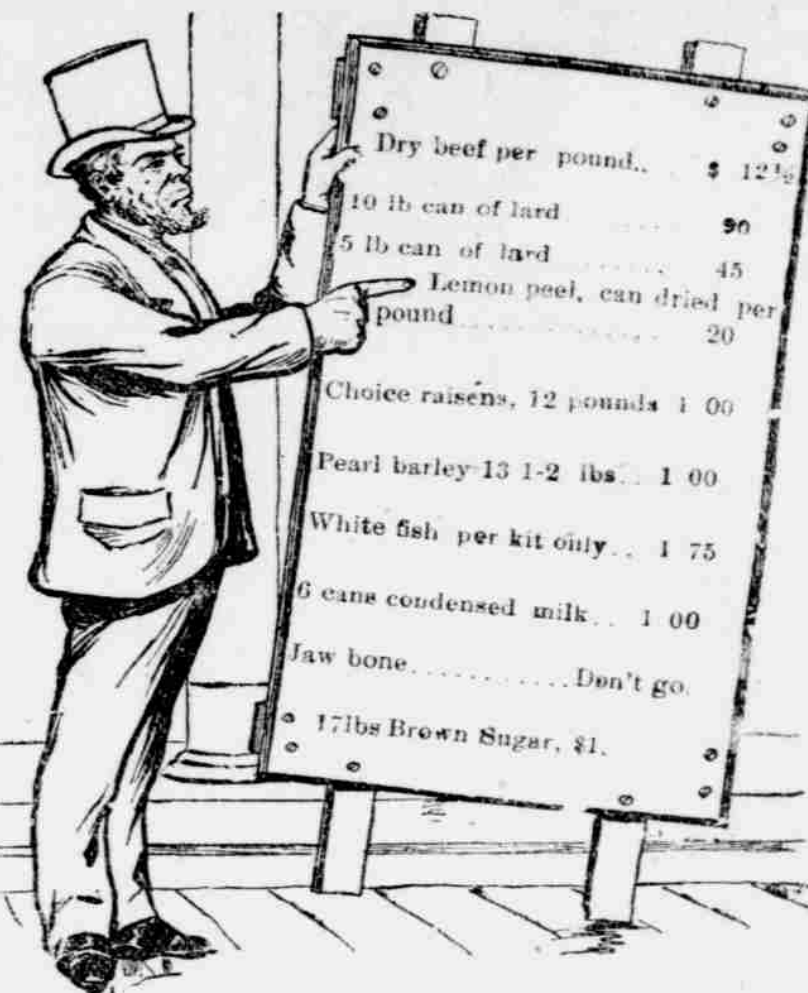 Dry beef per pound.. $ 12½
10 lb can of lard ..... 90
5 lb can of lard ....... 45
Lemon peel, can dried per
pound.................... 20
Choice raisens, 12 pounds 1 00
Pearl barley 13 1-2 lbs.. 1 00
White fish per kit only.. 1 75
6 cans condensed milk.. 1 00
Jaw bone............Don't go.
17lbs Brown Sugar, $1.